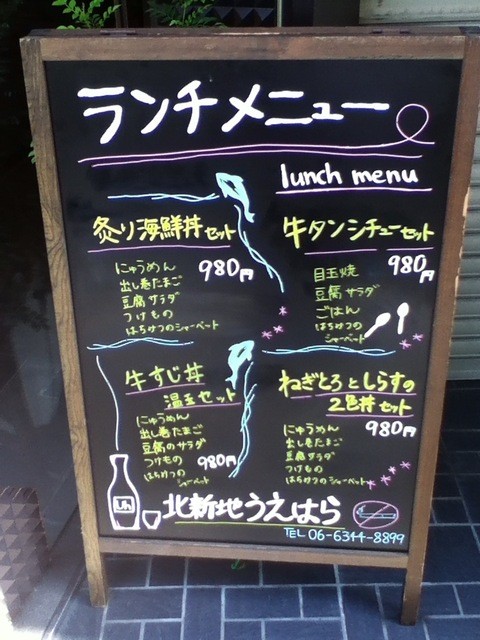 ランチメニュー
lunch menu
炙り海鮮丼セット
980円
にゅうめん
出し巻たまご
豆腐サラダ
つけもの
はちみつのシャーベット
牛タンシチューセット
980円
目玉焼
豆腐サラダ
ごはん
はちみつのシャーベット
牛すじ丼
温玉セット
にゅうめん
出し巻たまご
豆腐のサラダ
つけもの
はちみつのシャーベット
980円
ねぎとろとしらすの
2色丼セット
980円
にゅうめん
出し巻たまご
豆腐サラダ
つけもの
はちみつのシャーベット
北新地うえはら
TEL 06-6344-8899